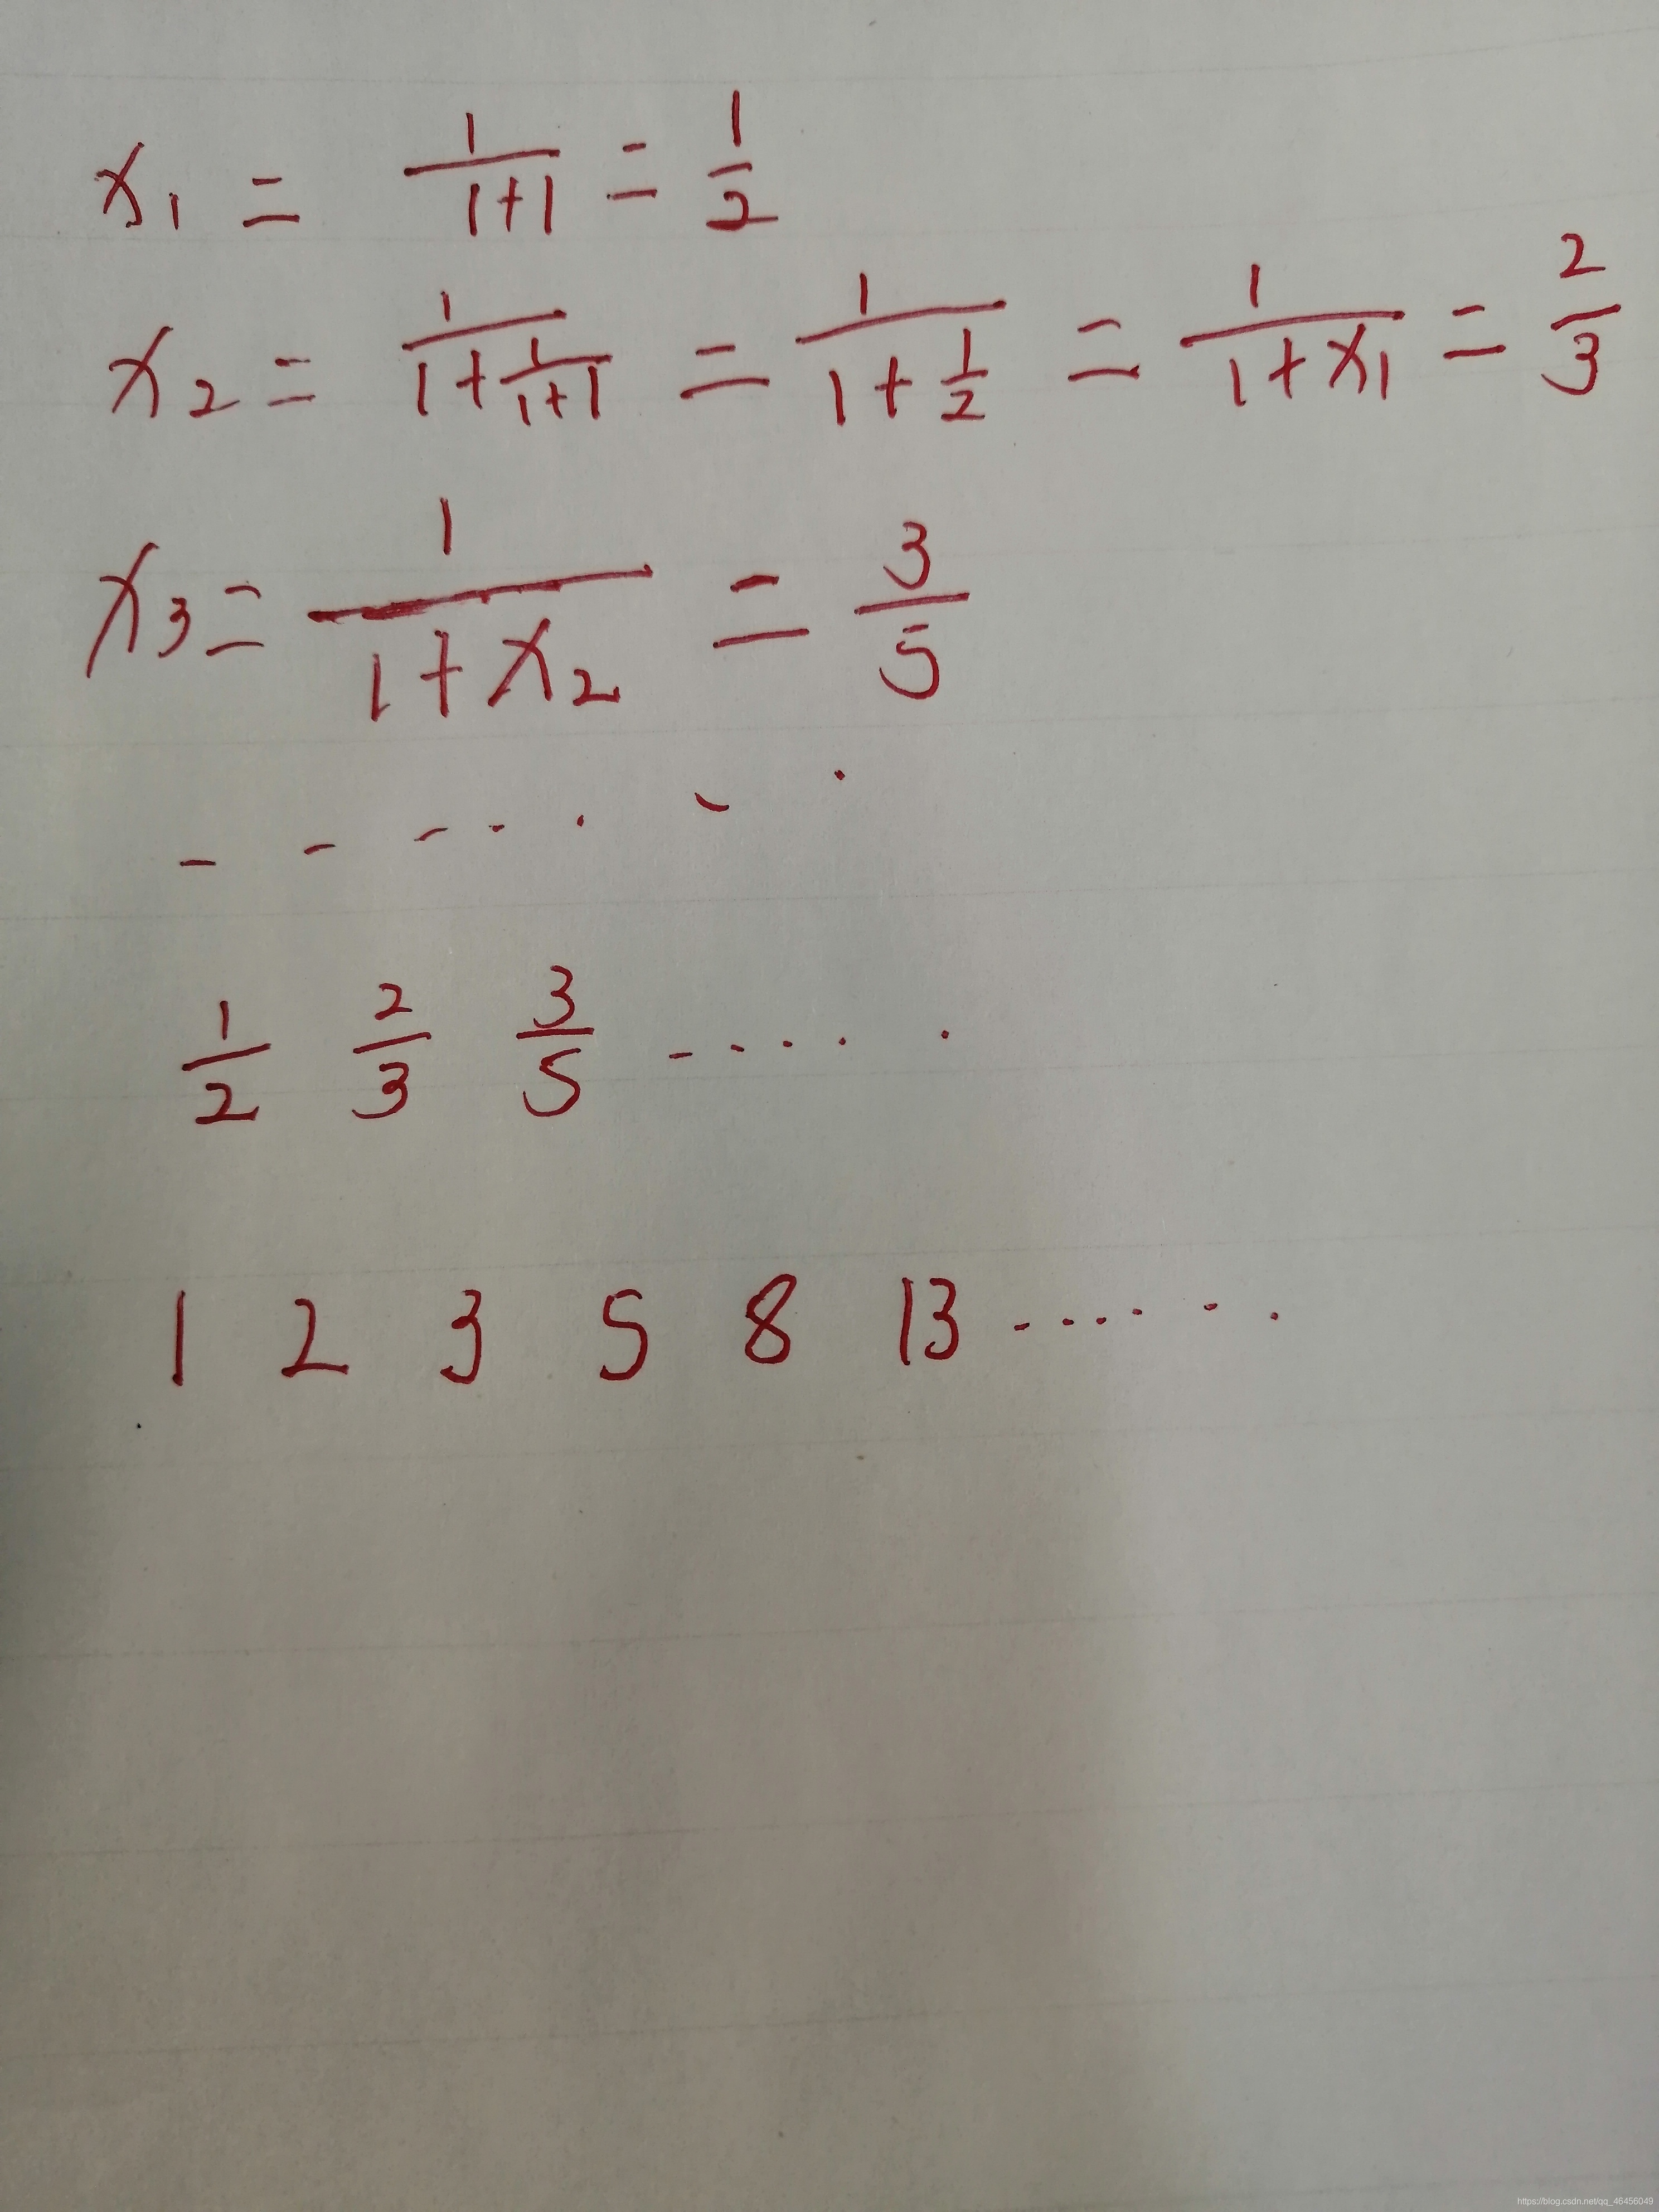 x₁ = 1/(1+1) = 1/2
x₂ = 1/(1+1/(1+1)) = 1/(1+1/2) = 1/(1+x₁) = 2/3
x₃ = 1/(1+x₂) = 3/5
1/2 2/3 3/5 ······
1 2 3 5 8 13 ······
https://blog.csdn.net/qq_46456049